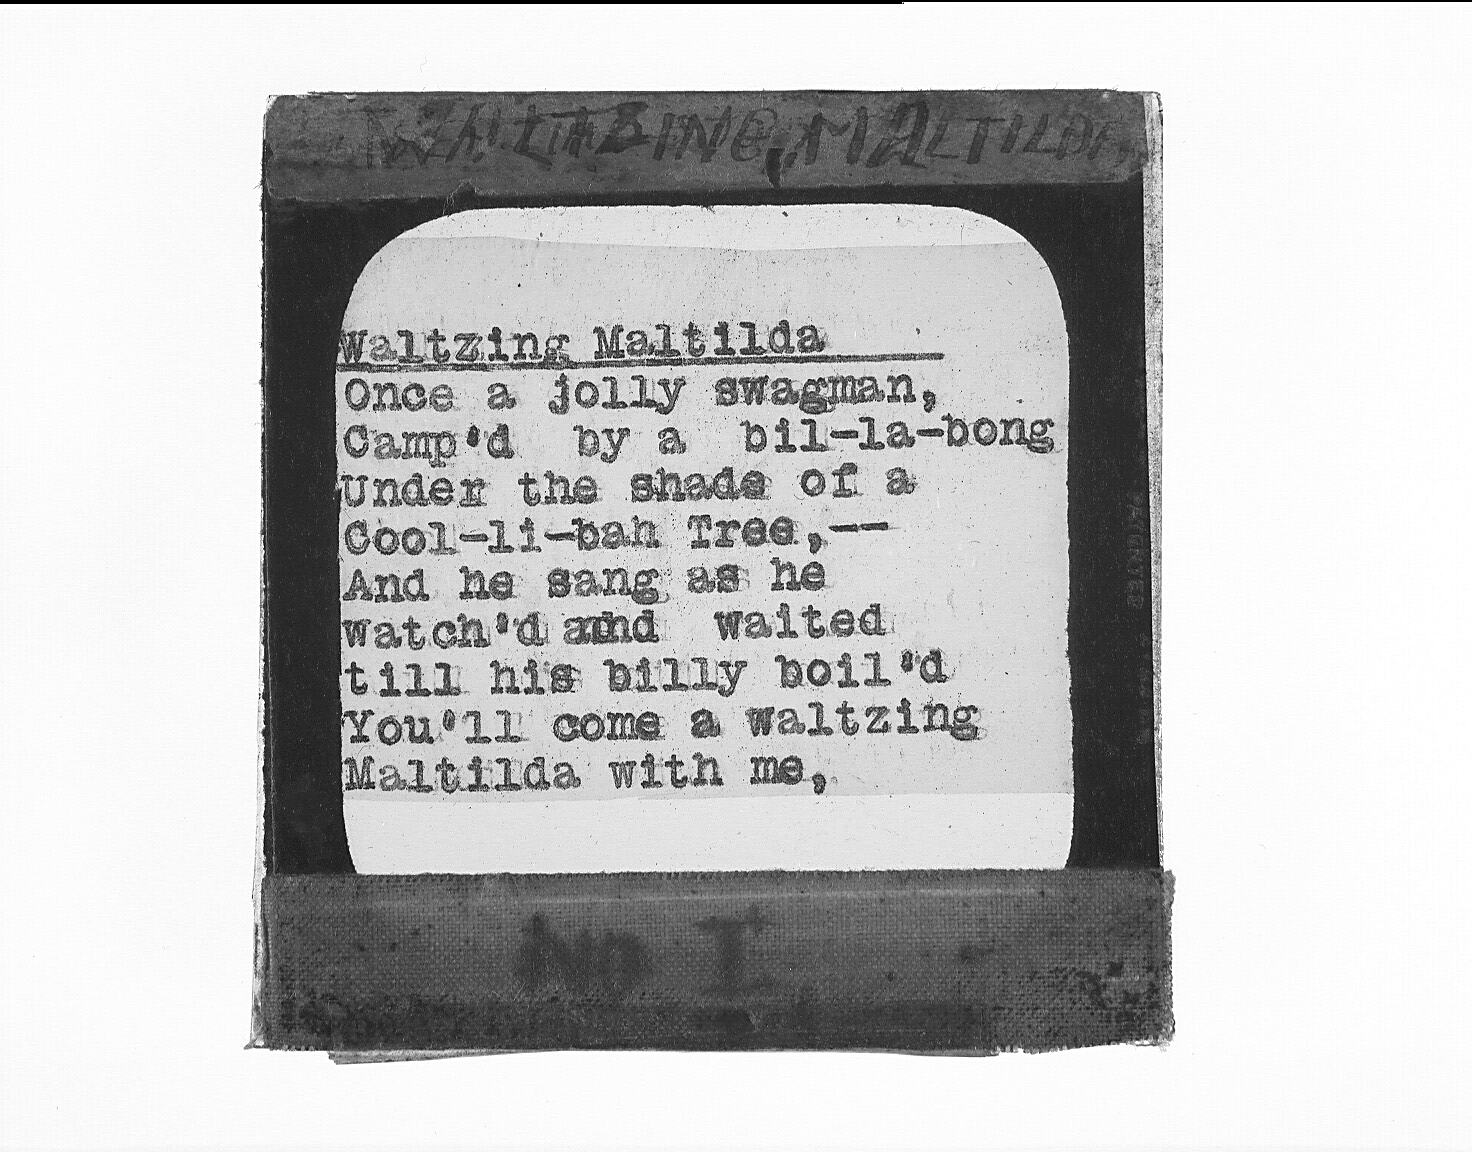 WALTZING MALTILDA
Waltzing Maltilda
Once a jolly swagman,
Camp'd by a bil-la-bong
Under the shade of a
Cool-li-bah Tree,--
And he sang as he
watch'd and waited
till his billy boil'd
You'll come a waltzing
Maltilda with me,
No I